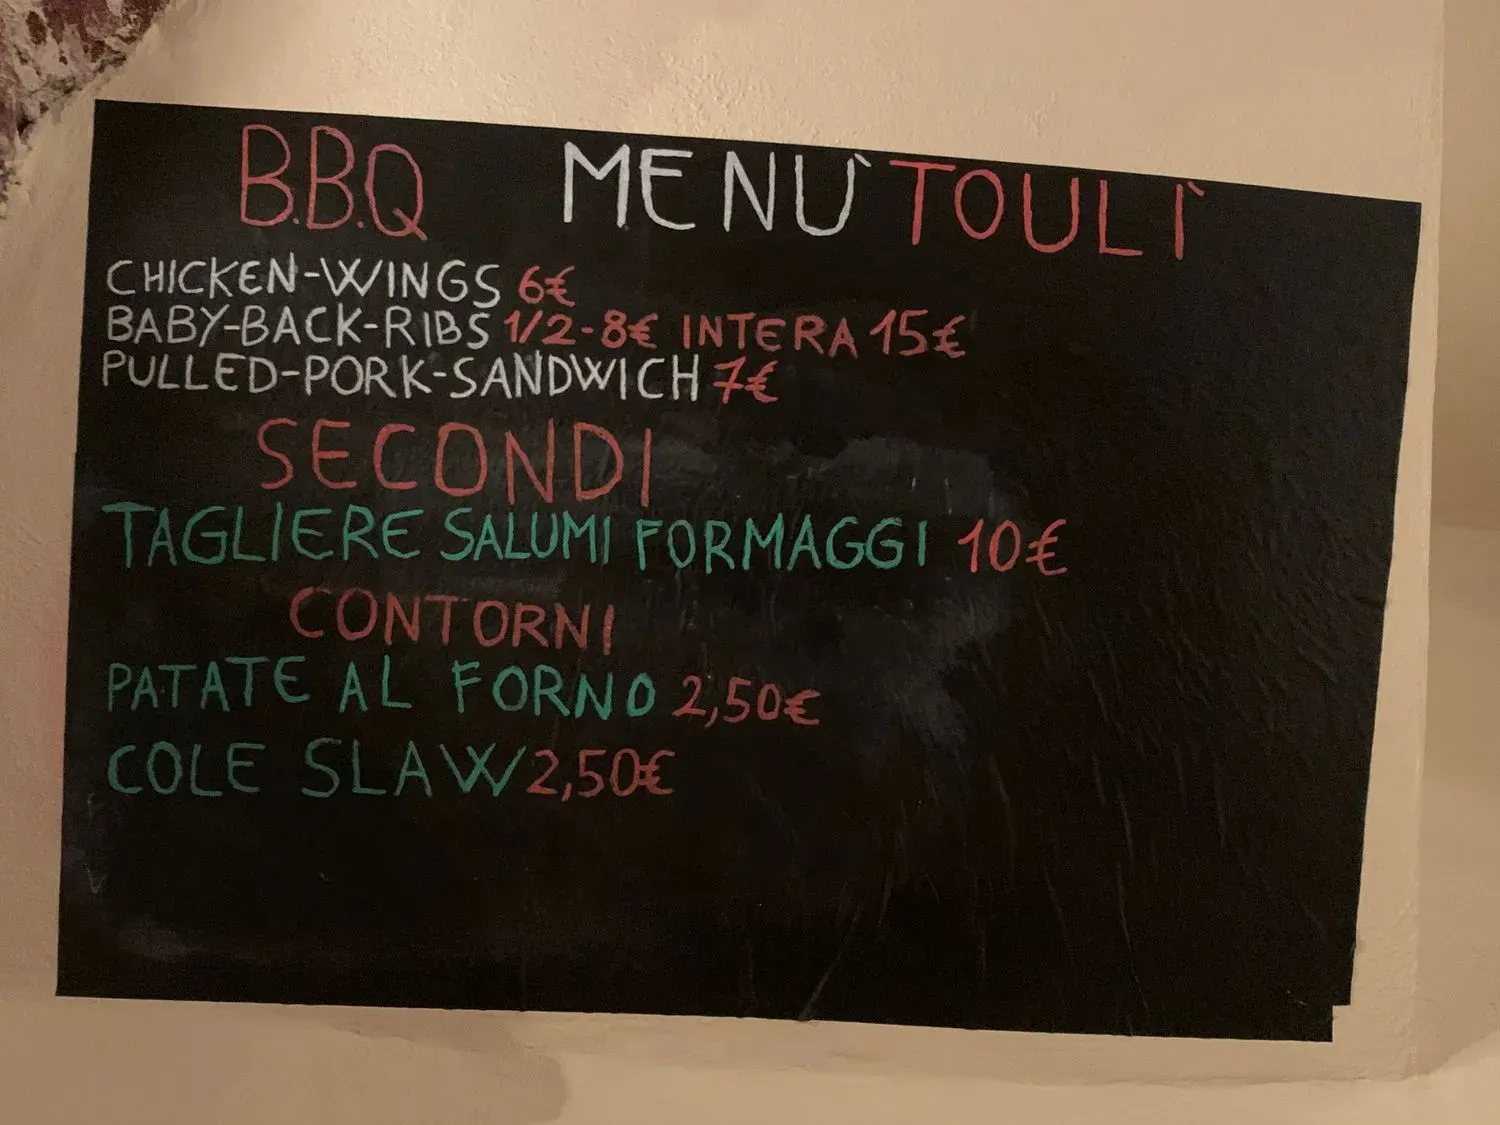 B.B.Q MENÙ TOULÌ
CHICKEN-WINGS 6€
BABY-BACK-RIBS 1/2-8€ INTERA 15€
PULLED-PORK-SANDWICH 7€
SECONDI
TAGLIERE SALUMI FORMAGGI 10€
CONTORNI
PATATE AL FORNO 2,50€
COLE SLAW 2,50€